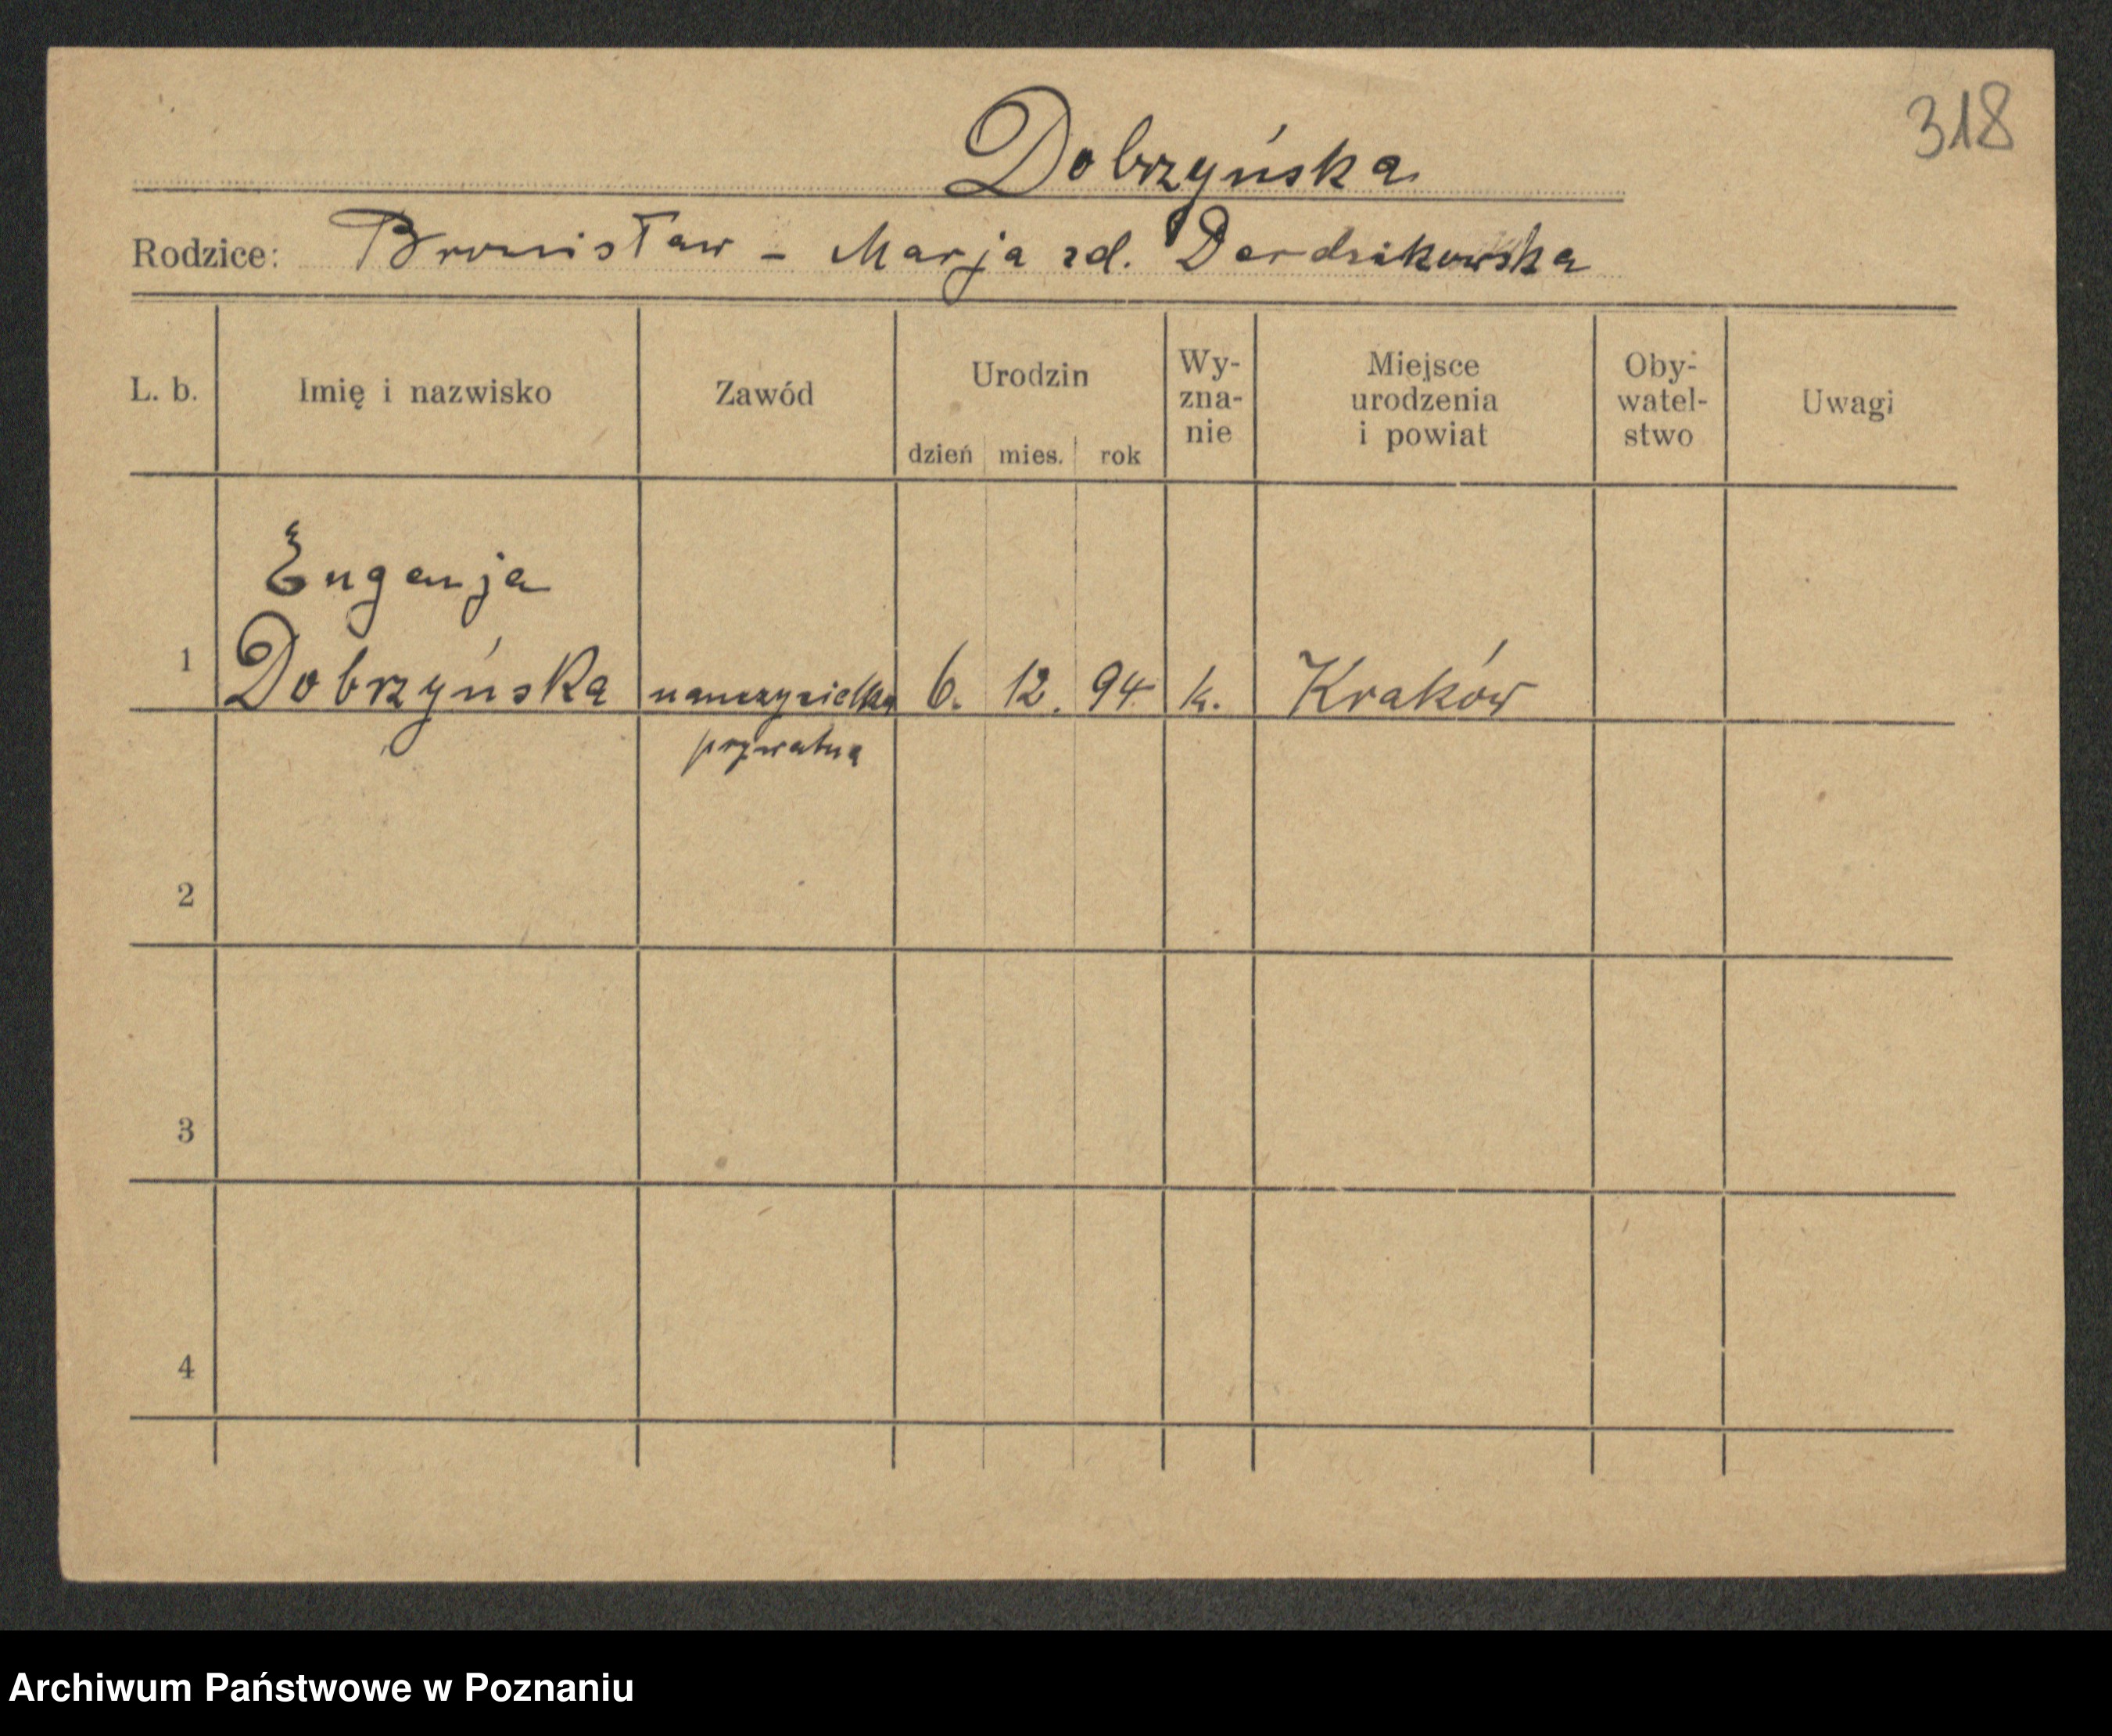 318
Dobrzyńska
Rodzice: Bronisław - Marja zd.
L. b. Imię i nazwisko Zawód Urodzin dzień mies. rok Wy-zna-nie Miejsce urodzenia i powiat Oby-watel-stwo Uwagi
Eugenja
1 Dobrzyńska nauczycielka 6. 12. 94 k. Kraków
prywatna
2
3
4
Archiwum Państwowe w Poznaniu